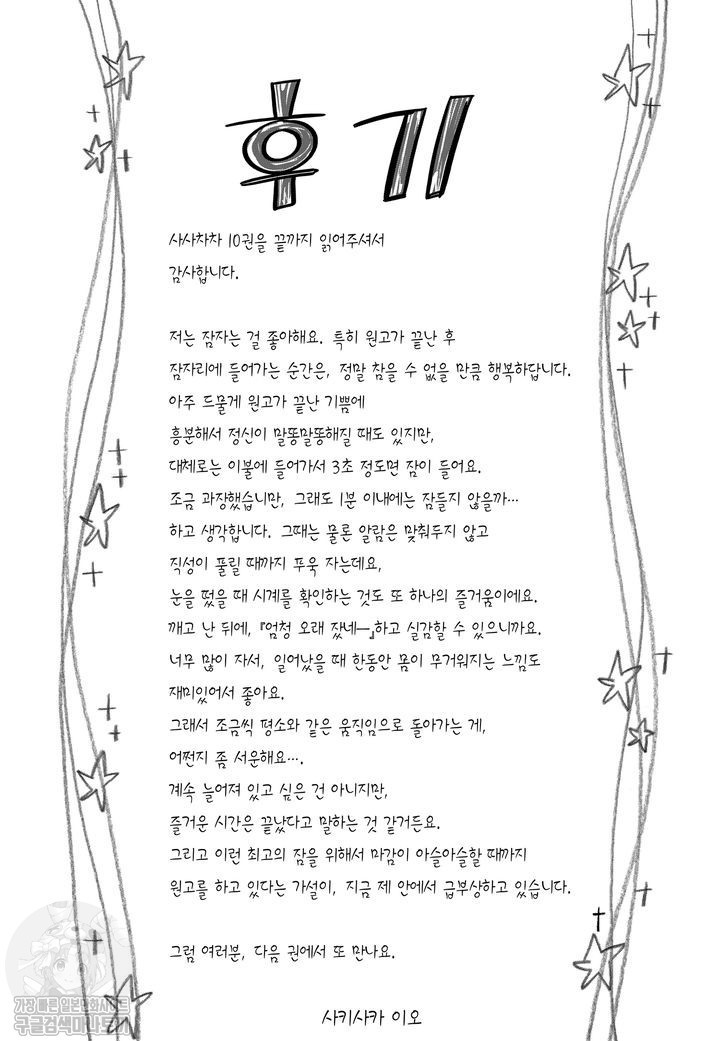 후기
사사차차 10권을 끝까지 읽어주셔서
감사합니다.
저는 잠자는 걸 좋아해요. 특히 원고가 끝난 후
잠자리에 들어가는 순간은, 정말 참을 수 없을 만큼 행복하답니다.
아주 드물게 원고가 끝난 기쁨에
흥분해서 정신이 말똥말똥해질 때도 있지만,
대체로는 이불에 들어가서 3초 정도면 잠이 들어요.
조금 과장했습니만, 그래도 1분 이내에는 잠들지 않을까…
하고 생각합니다. 그때는 물론 알람은 맞춰두지 않고
직성이 풀릴 때까지 푸욱 자는데요,
눈을 떴을 때 시계를 확인하는 것도 또 하나의 즐거움이에요.
깨고 난 뒤에, 『엄청 오래 잤네─』하고 실감할 수 있으니까요.
너무 많이 자서, 일어났을 때 한동안 몸이 무거워지는 느낌도
재미있어서 좋아요.
그래서 조금씩 평소와 같은 움직임으로 돌아가는 게,
어쩐지 좀 서운해요….
계속 늘어져 있고 싶은 건 아니지만,
즐거운 시간은 끝났다고 말하는 것 같거든요.
그리고 이런 최고의 잠을 위해서 마감이 아슬아슬할 때까지
원고를 하고 있다는 가설이, 지금 제 안에서 급부상하고 있습니다.
그럼 여러분, 다음 권에서 또 만나요.
사키사카 이오
가장 빠른 일본만화사이트
구글검색마나토끼